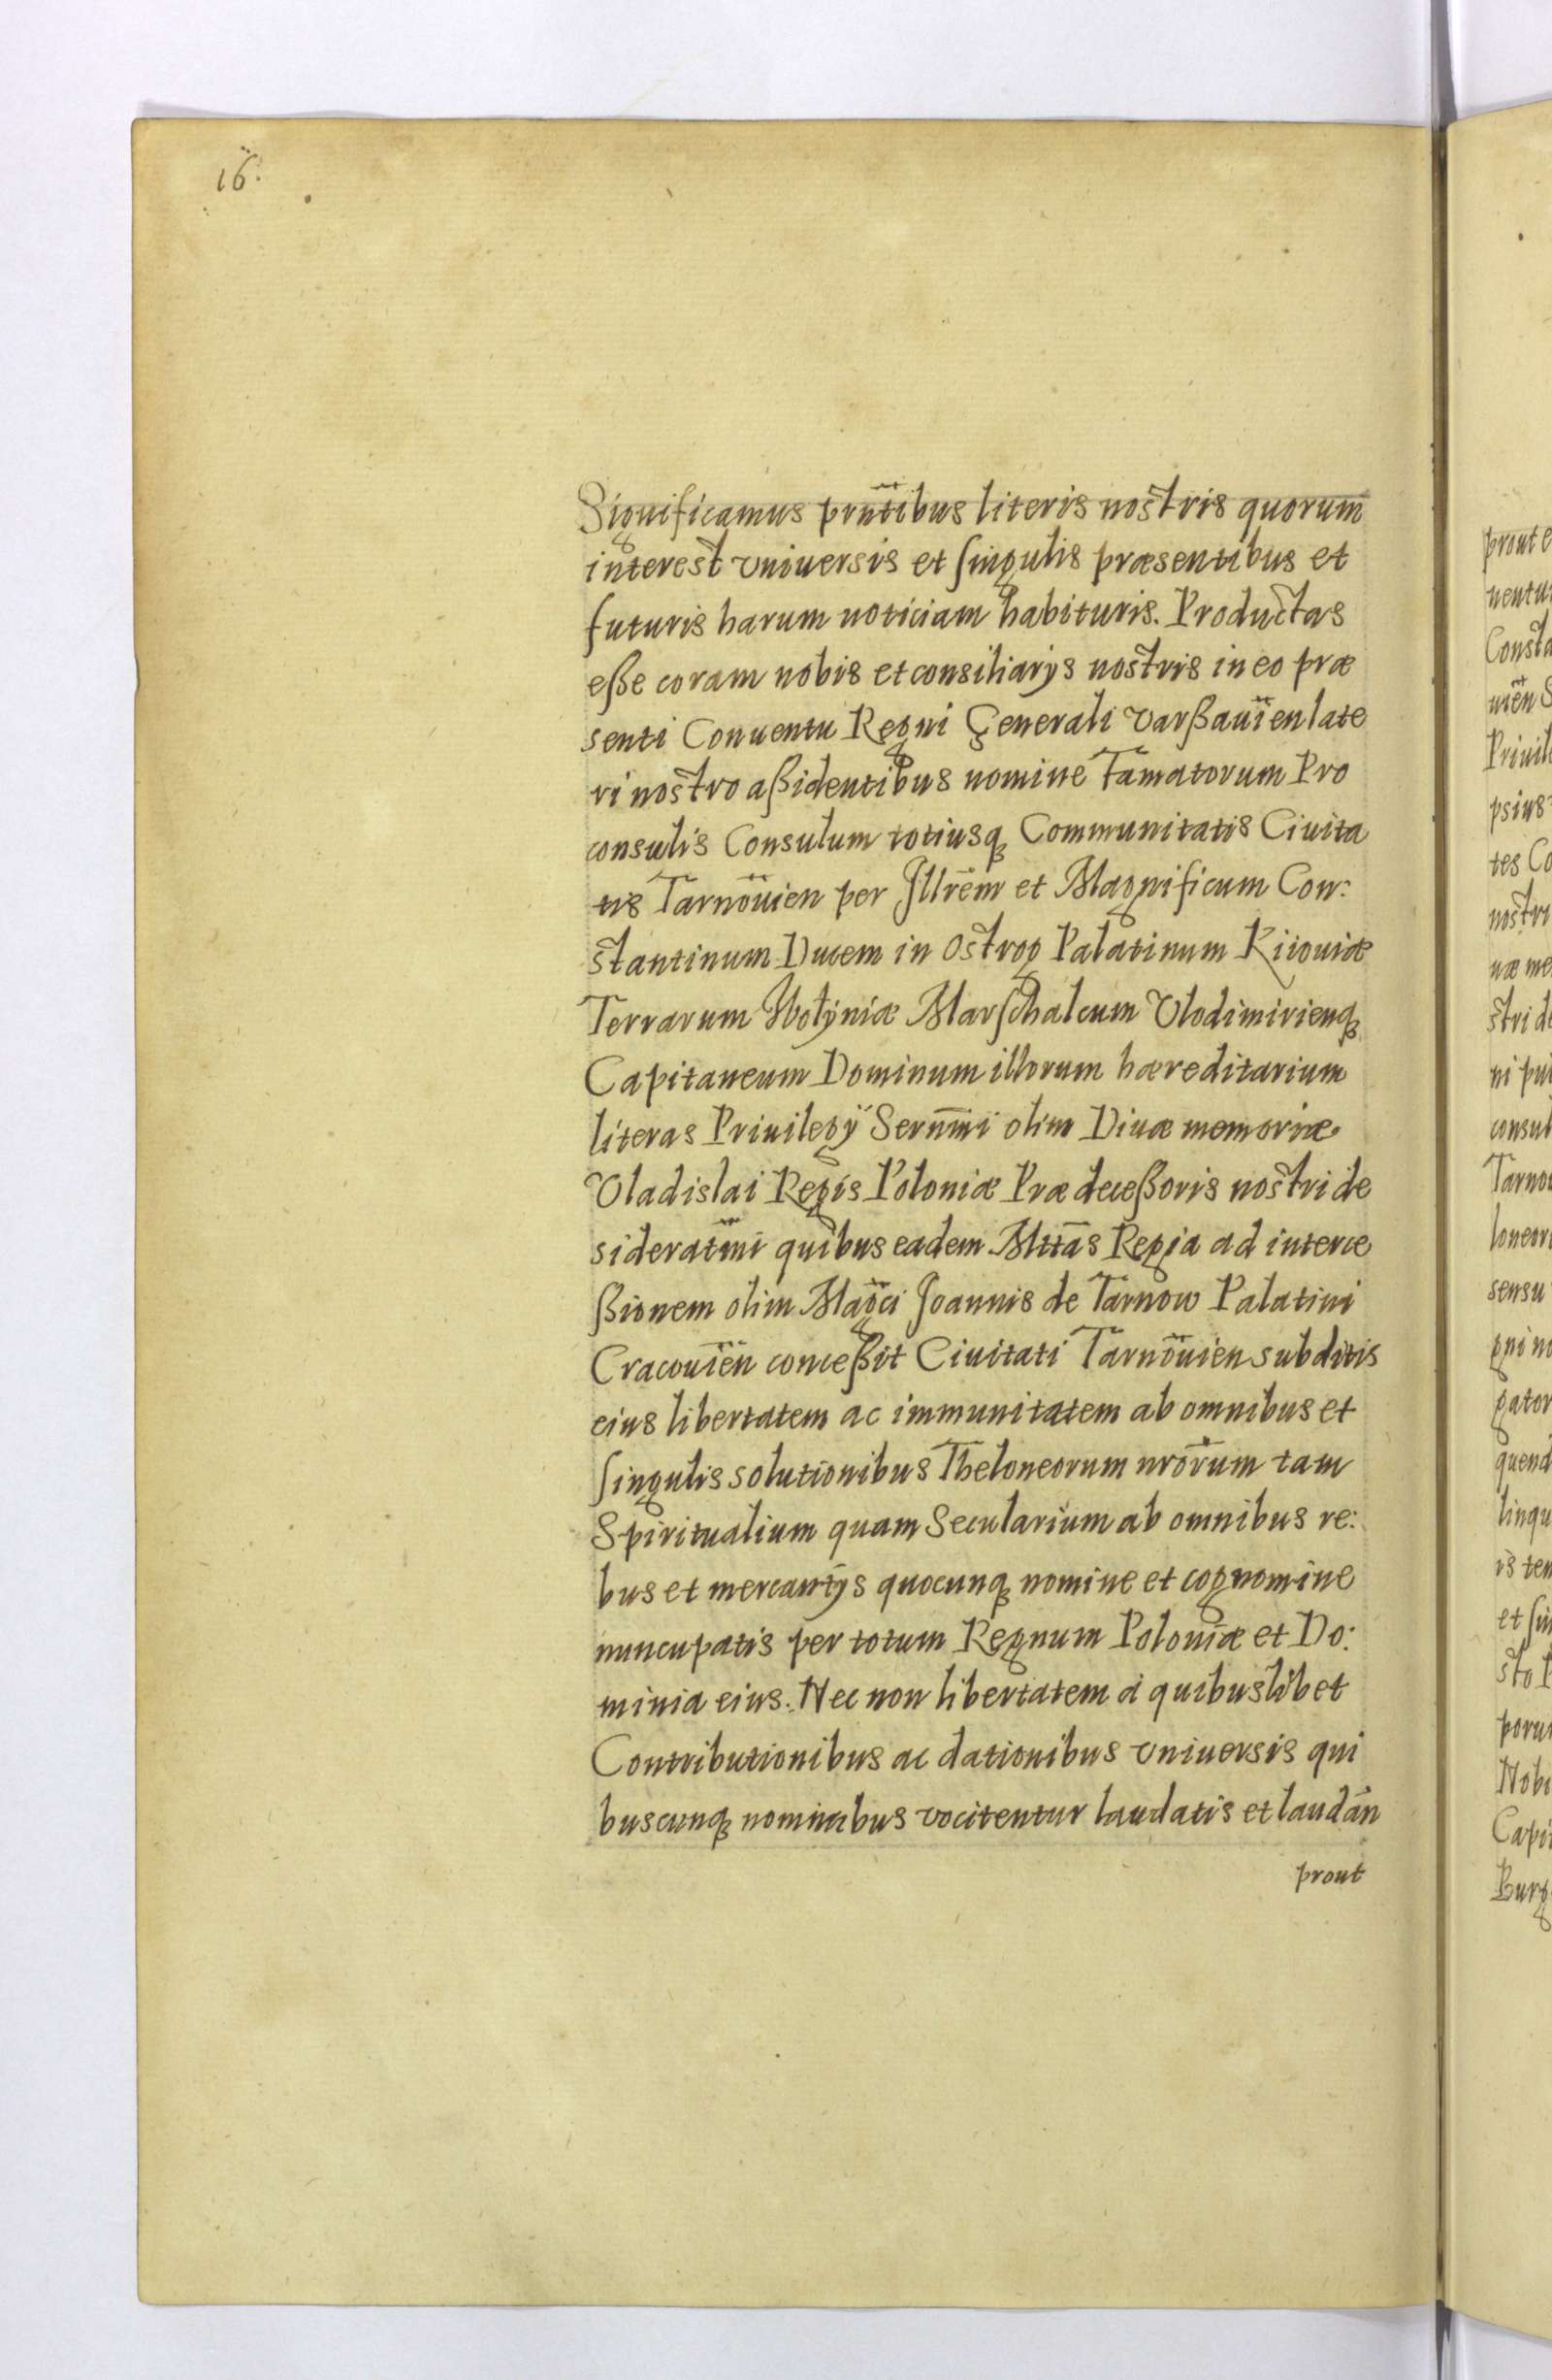 16.
Significamus prñtibus literis nostris quorum
interest vniuersis et singulis præsentibus et
futuris harum noticiam habituris. Productas
eße coram nobis et consiliarÿs nostris in eo præ
senti Conuentu Regni Generali Varßauien late
ri nostro aßidentibus nomine Famatorum Pro
consulis Consulum totiusq Communitatis Ciuita
tis Tarnouien per Illrem et Magnificum Con:
stantinum Ducem in Ostrog Palatinum Kiiouiæ
Terrarum Wolyniæ Marschalcum Vlodimirienq
Capitaneum Dominum illorum hæreditarium
literas Priuilegÿ Sernmi olim Diuæ memoriæ
Vladislai Regis Poloniæ Prædeceßoris nostri de
sideratmi quibus eadem Mttas Regia ad interce
ßionem olim Magci Joannis de Tarnow Palatini
Cracouien conceßit Ciuitati Tarnouien subditis
eius libertatem ac immunitatem ab omnibus et
singulis solutionibus Theloneorum nrorum tam
Spiritualium quam Secularium ab omnibus re:
bus et mercantÿs quocunq nomine et cognomine
nuncupatis per totum Regnum Poloniæ et Do:
minia eius. Nec non libertatem à quibuslibet
Contributionibus ac dationibus vniuersis qui
buscunq nominibus vocitentur laudatis et laudan
prout
prout e
nentu
Consta
uien S
Priuil
psius
tes Co
nostri
uæ me
stri de
ni pu
consul
Tarno
loneor
sensu
gni no
gator
quend
linqu
is tem
et sin
sto P
porum
Nobi
Capi
Burg